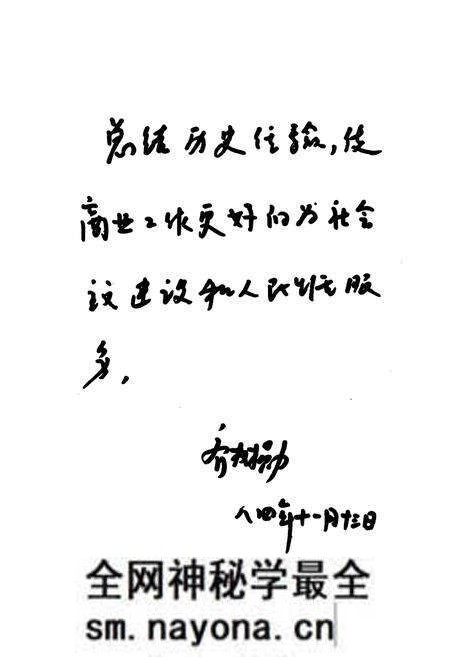 总结历史经验,使
商业工作更好的为社会
主义建设和人民生活服
务。
八四年十一月十三日
全网神秘学最全
sm.nayona.cn